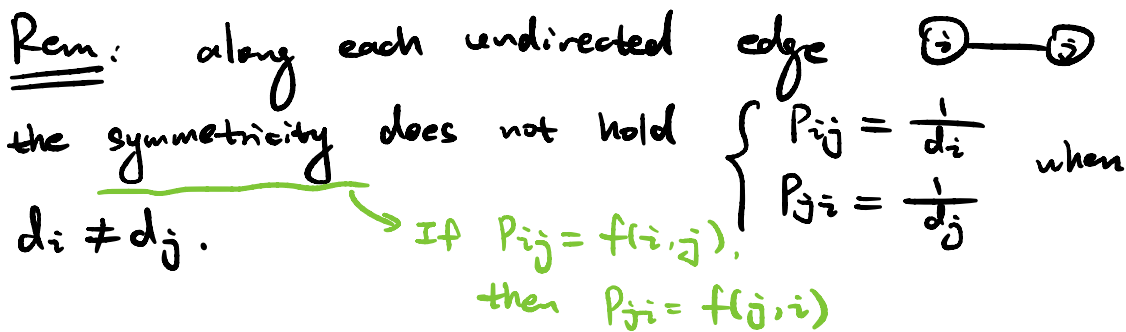 Rem: along each undirected edge i j
the symmetricity does not hold { P_ij = 1/d_i
P_ji = 1/d_j when
d_i ≠ d_j.
If P_ij = f(i,j),
then P_ji = f(j,i)